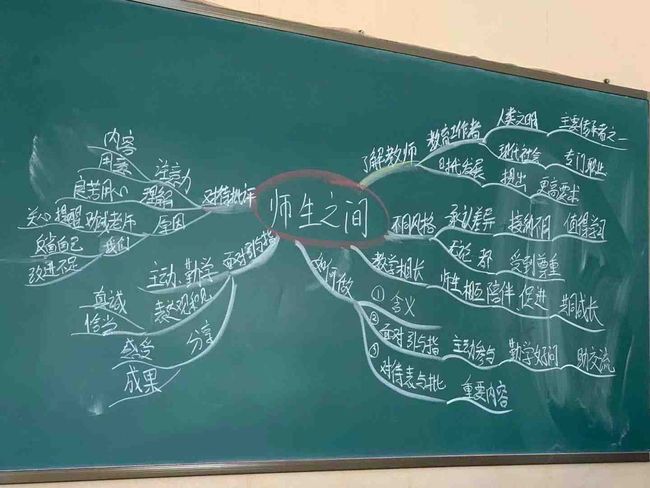 师生之间
了解教师
教育工作者
人类文明
主要传承者之一
现代社会
专门职业
时代发展
提出
更高要求
不同风格
承认差异
接纳不同
值得学习
无论 都
受到尊重
如何做
教学相长
① 含义
师生相互陪伴 促进
共同成长
② 面对引与指
主动参与
勤学好问
助交流
③ 对待表与批
重要内容
对待批评
注意力
内容
用意
理解
良苦用心
原因
关心 提醒
老师
我们
反省自己
改进不足
面对引与指
主动、勤学
表达观和见
真诚
恰当
分享
感受
成果